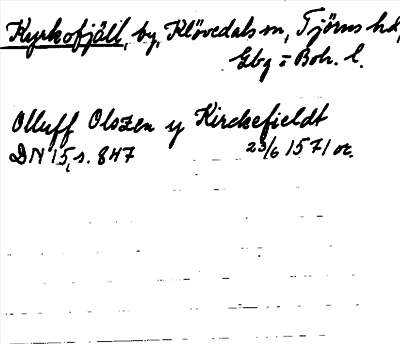 Kyrkofjäll, by, Klövedals sn, Tjörns hd,
Gbg o Boh. l.
Olluff Olszen y Kirckefieldt
DN 15, s. 847 23/6 1571 or.